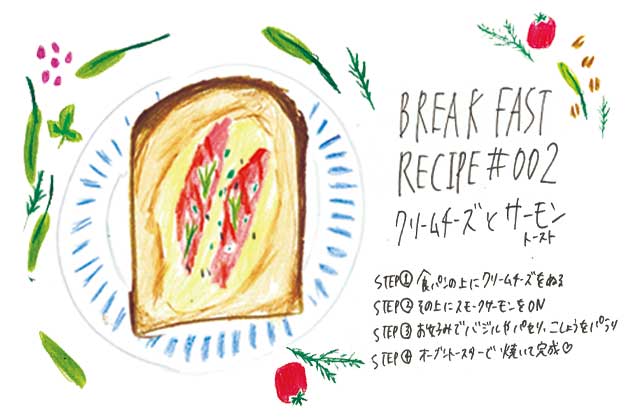 BREAK FAST
RECIPE#002
クリームチーズとサーモン
トースト
STEP① 食パンの上にクリームチーズをぬる
STEP② その上にスモークサーモンをON
STEP③ お好みでバジルやパセリ、こしょうをパラリ
STEP④ オーブントースターで焼いて完成♡